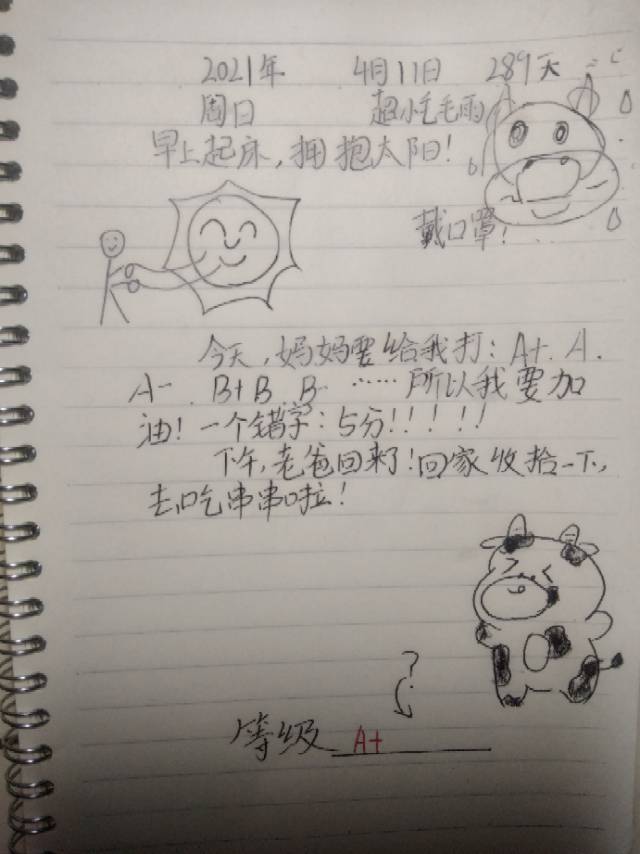 2021年 4月11日 289天
周日 超小毛毛雨
早上起床,拥抱太阳!
戴口罩!...
今天,妈妈要给我打:A+.A.
A-.B+B.B-……所以我要加
油!一个错字:5分!!!!!
下午,老爸回来了!回家收拾一下,
去吃串串啦!
?
等级 A+